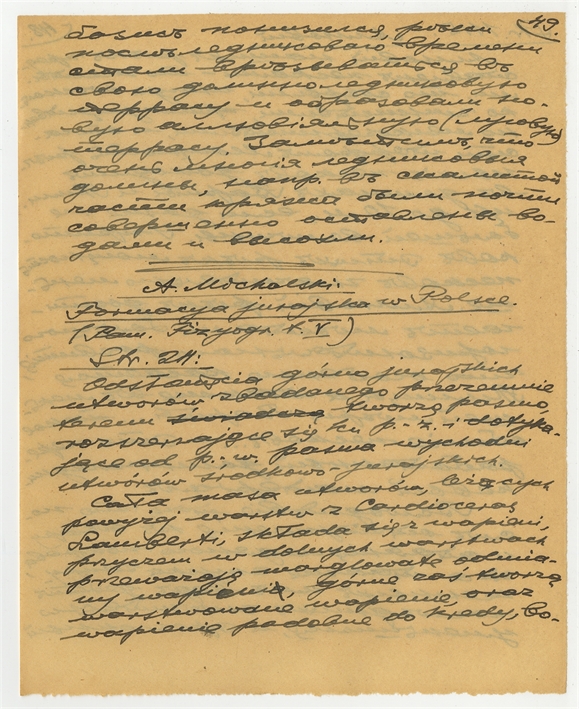 49.
базисъ понизился, рѣки
послѣледниковаго времени
стали врѣзываться въ
свою долинноледниковую
террасу и образовали но-
вую аллювіяльную (луговую)
террасу. Замѣтимъ, что
очень многія ледниковыя
долины, напр. въ скалистой
части кряжа были почти
совершенно оставлены во-
дами и высохли.
A. Michalski.
Formacya jurajska w Polsce.
(Pam. Fizyogr. t. V)
Str. 211:
Odsłonięcia górno jurajskich
utworów zbadanego przezemnie
terenu świadczą tworzą pasmo,
rozszerzające się ku p.-z. i dotyka-
jące od p.-w. pasma wychodni
utworów środkowo-jurajskich.
Cała masa utworów, leżących
powyżej warstw z Cardioceras
Lamberti, składa się z wapieni,
przyczem w dolnych warstwach
przeważają marglowate odmia-
ny wapienia, górne zaś tworzą
warstwowane wapienie, oraz
wapienie podobne do kredy, Co-